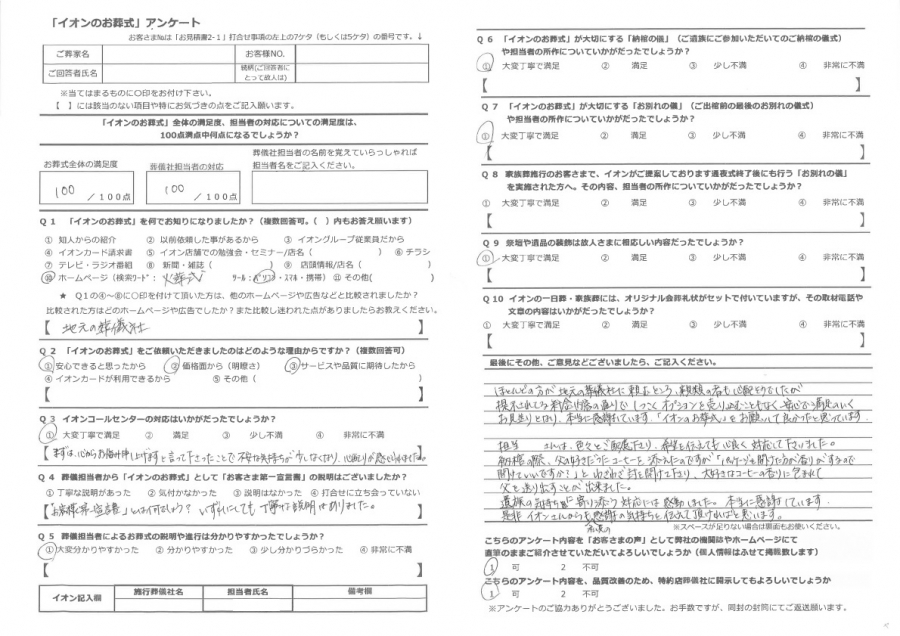 「イオンのお葬式」アンケート
お客さま№は「お見積書2-1」打合せ事項の左上の7ケタ（もしくは5ケタ）の番号です。↓
ご葬家名 お客様NO.
ご回答者氏名 続柄(ご回答者にとって故人は)
※当てはまるものに〇印をお付け下さい。
【　】には該当のない項目や特にお気づきの点をご記入願います。
「イオンのお葬式」全体の満足度、担当者の対応についての満足度は、
100点満点中何点になるでしょうか？
葬儀社担当者の名前を覚えていらっしゃれば
お葬式全体の満足度 葬儀社担当者の対応 担当者名をご記入ください。
100 /100点 100 /100点
Q１ 「イオンのお葬式」を何でお知りになりましたか？（複数回答可。（　）内もお答え願います）
① 知人からの紹介 ② 以前依頼した事があるから ③ イオングループ従業員だから
④ イオンカード請求書 ⑤ イオン店舗での勉強会・セミナー/店名（　） ⑥ チラシ
⑦ テレビ・ラジオ番組 ⑧ 新聞・雑誌（　） ⑨ 店頭情報/店名（　）
⑩ ホームページ（検索ワード： 火葬式 ツール：パソコン・スマホ・携帯） ⑪ その他（　）
★ Q１の④～⑩に〇印を付けて頂いた方は、他のホームページや広告などと比較されましたか？
比較された方はどのホームページや広告でしたか？また比較し迷われた点がありましたらお教えください。
【 地元の葬儀社 】
Q２ 「イオンのお葬式」をご依頼いただきましたのはどのような理由からですか？（複数回答可）
①安心できると思ったから ②価格面から（明瞭さ） ③サービスや品質に期待したから
④イオンカードが利用できるから ⑤その他（　）
【　】
Q３ イオンコールセンターの対応はいかがだったでしょうか？
① 大変丁寧で満足 ② 満足 ③ 少し不満 ④ 非常に不満
【まずは、心からお悔み申し上げますと言って下さったことで不安な気持ちが少しなくなり、心配りが感じられました。】
Q４ 葬儀担当者から「イオンのお葬式」として「お客さま第一宣言書」の説明はございましたか？
① 丁寧な説明があった ② 気付かなかった ③ 説明はなかった ④ 打合せに立ち会っていない
【「お客様第一宣言書」とは何でしょう？ いずれにしても丁寧な説明はありました。】
Q５ 葬儀担当者によるお葬式の説明や進行は分かりやすかったでしょうか？
①大変分かりやすかった ② 分かりやすかった ③ 少し分かりづらかった ④ 非常に不満
【　】
イオン記入欄 施行葬儀社名 担当者氏名 備考欄
Q６ 「イオンのお葬式」が大切にする「納棺の儀」（ご遺族にご参加いただいてのご納棺の儀式）
や担当者の所作についていかがだったでしょうか？
① 大変丁寧で満足 ② 満足 ③ 少し不満 ④ 非常に不満
【　】
Q７ 「イオンのお葬式」が大切にする「お別れの儀」（ご出棺前の最後のお別れの儀式）
や担当者の所作についていかがだったでしょうか？
① 大変丁寧で満足 ② 満足 ③ 少し不満 ④ 非常に不満
【　】
Q８ 家族葬施行のお客さまで、イオンがご提案しております通夜式終了後にも行う「お別れの儀」
を実施された方へ。その内容、担当者の所作についていかがだったでしょうか？
① 大変丁寧で満足 ② 満足 ③ 少し不満 ④ 非常に不満
【　】
Q９ 祭壇や遺品の装飾は故人さまに相応しい内容だったでしょうか？
① 大変丁寧で満足 ② 満足 ③ 少し不満 ④ 非常に不満
【　】
Q10 イオンの一日葬・家族葬には、オリジナル会葬礼状がセットで付いていますが、その取材電話や
文章の内容はいかがだったでしょうか？
① 大変丁寧で満足 ② 満足 ③ 少し不満 ④ 非常に不満
【　】
最後にその他、ご意見などございましたら、ご記入ください。
ほとんどの方が地元の葬儀社に頼むところ、親類の者も心配そうでしたが
提示されてる料金状態の通りで しつこくオプションを売り込むこともなく 安心から満足のいく
お見送りとなり、本当に感謝しています。「イオンのお葬式」をお願いして良かったと思っています。
担当 さんは、色々とご配慮下さり、希望を伝えても心良く対応して下さいました。
納棺の際、父の好きだったコーヒーを添えたのですが「パッケージも開けた方が香りがするので
開けていいですか？」と わざわざ封を開けて下さり、大好きなコーヒーの香りに包まれて
父を送り出すことが出来ました。
遺族の気持ちに寄り添う対応には感動しました。本当に感謝しています。
是非 イオンさんからも感謝の気持ちを伝えて頂ければと思います。
家族の
※スペースが足りない場合は裏面もお使いください。
こちらのアンケート内容を「お客さまの声」として弊社の機関誌やホームページにて
直筆のままご紹介させていただいてよろしいでしょうか（個人情報はふせて掲載致します）
1 可 2 不可
こちらのアンケート内容を、品質改善のため、特約店葬儀社に開示してもよろしいでしょうか
1 可 2 不可
※アンケートのご協力ありがとうございました。お手数ですが、同封の封筒にてご返送願います。